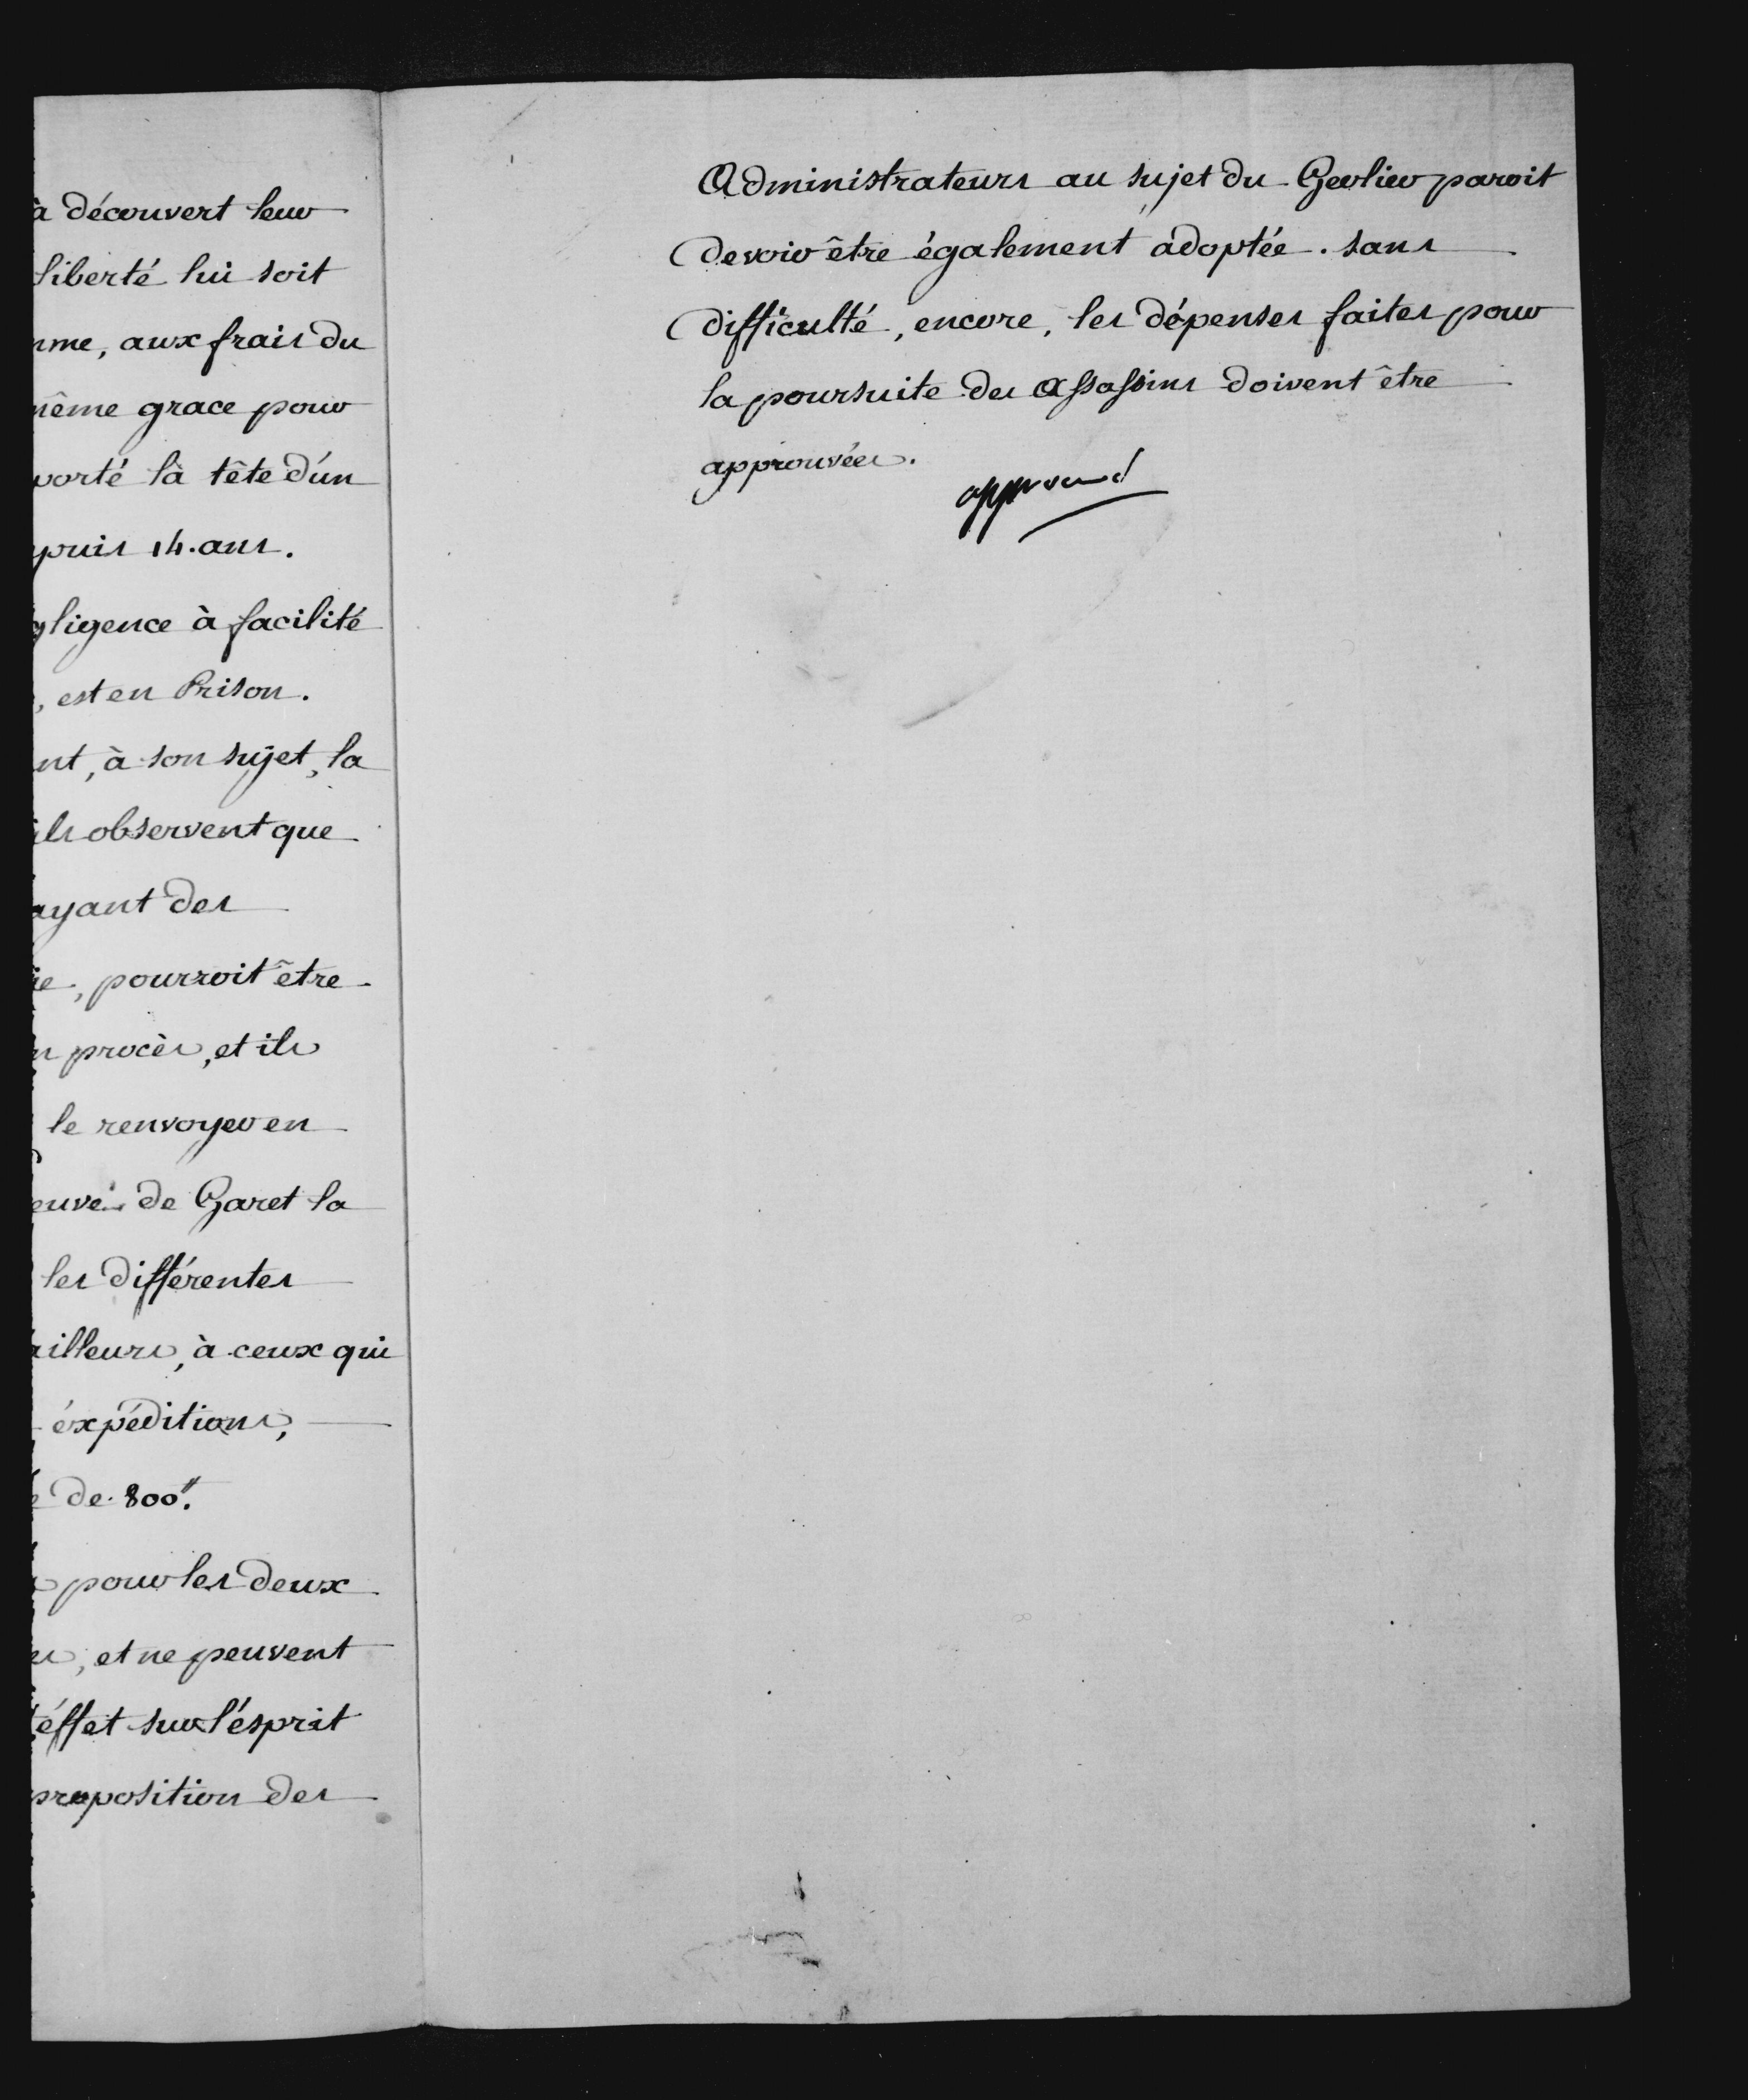 à découvert leur
liberté lui soit
me, aux frais du
même grace pour
porté la tête d'un
puis 14. ans.
gligence à facilité
, est en Prison.
nt, à son sujet, la
ils observent que
ayant des
ie, pourroit être
n procès, et ils
le renvoyer en
euve de Garet la
les différentes
ailleurs, à ceux qui
éxpéditions,
de 800.ᵗᵗ
pour les deux
es, et ne peuvent
éffet sur l'ésprit
proposition des
Administrateurs au sujet du Geolier paroit
devoir être également adoptée. sans
difficulté, encore, les dépenses faites pour
la poursuite des assassins doivent être
approuvées.
approuvé